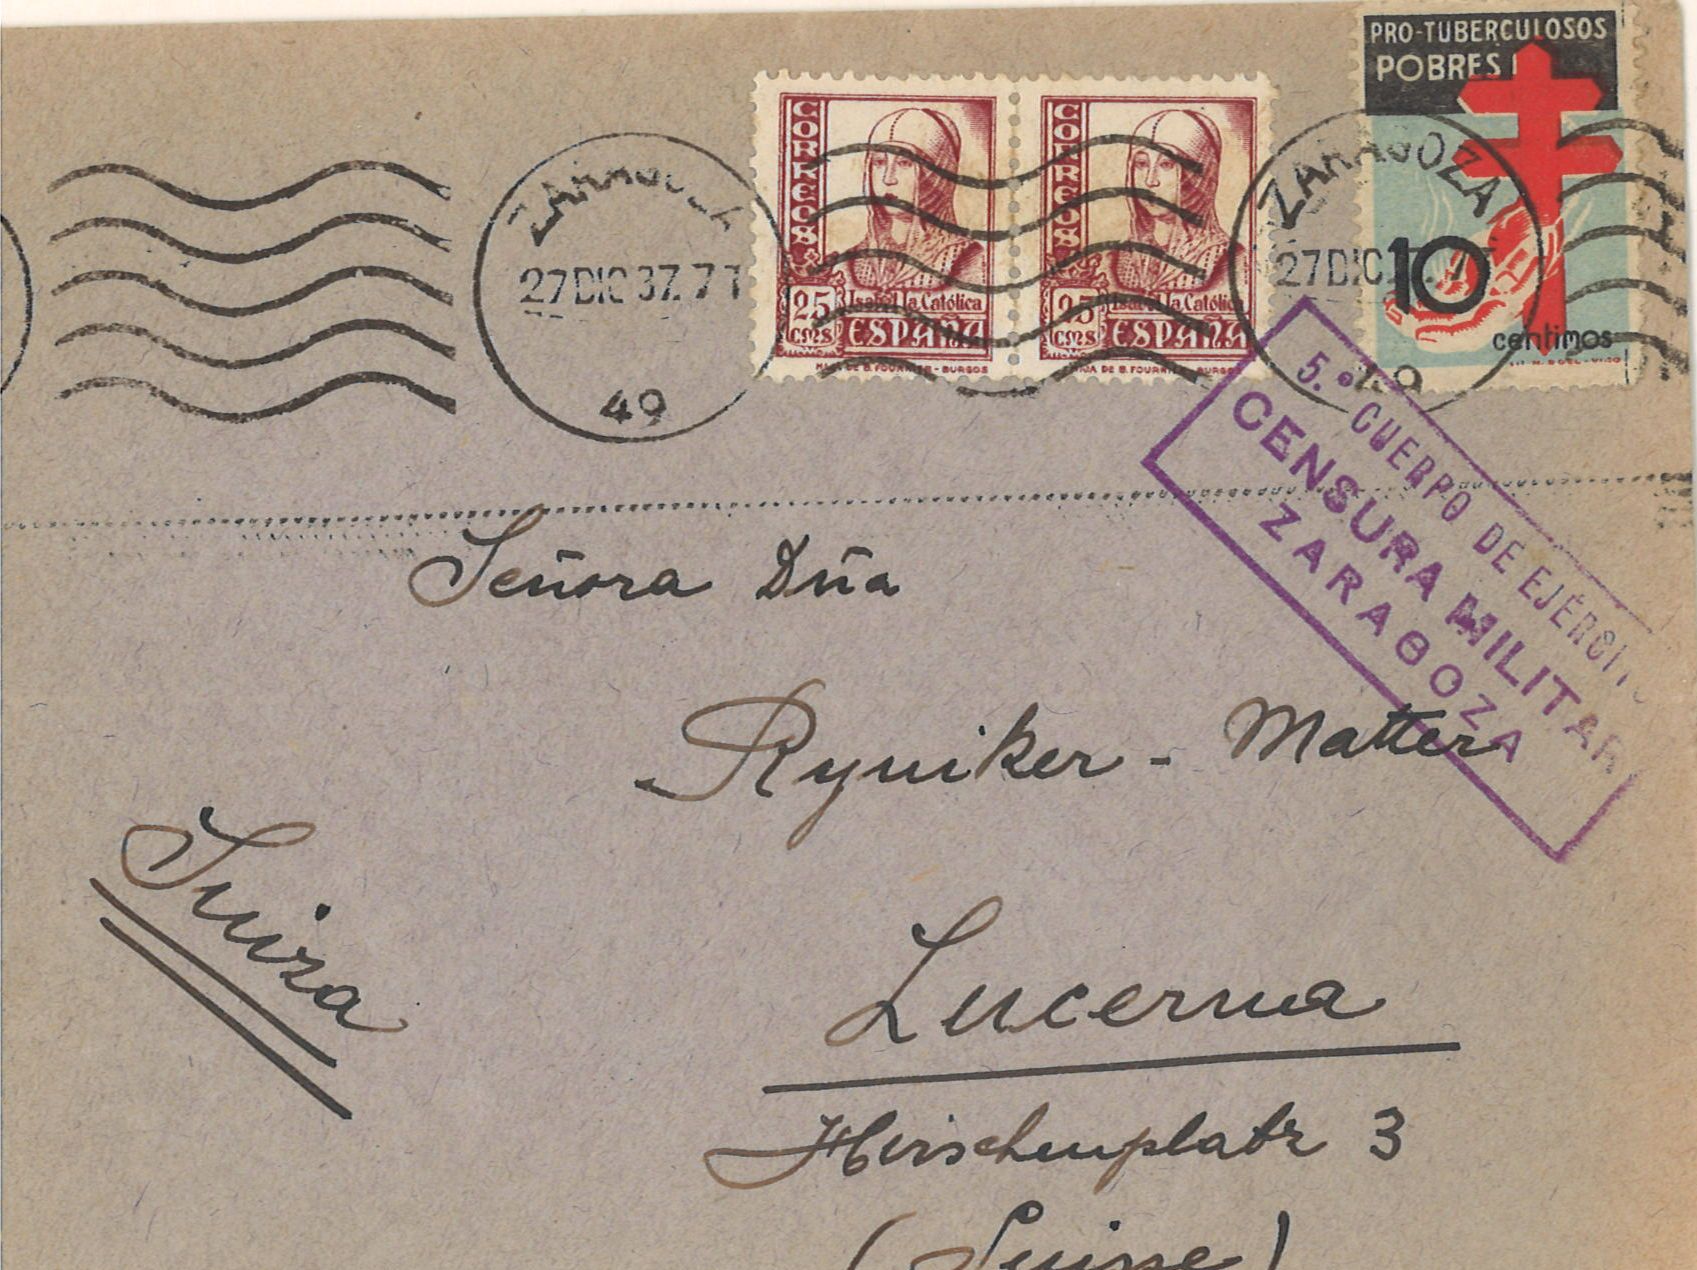 PRO-TUBERCULOSOS
POBRES
10
centimos
CORREOS
25
CTMS
Isabel la Católica
ESPAÑA
HIJA DE B. FOURNIER - BURGOS
CORREOS
25
CTMS
Isabel la Católica
ESPAÑA
HIJA DE B. FOURNIER - BURGOS
ZARAGOZA
27 DIC 37. 7T
49
ZARAGOZA
27 DIC
49
5.º CUERPO DE EJÉRCITO
CENSURA MILITAR
ZARAGOZA
Señora Dña
Ryniker - Matter
Suiza
Lucerna
Hirschenplatz 3
(Suisse)